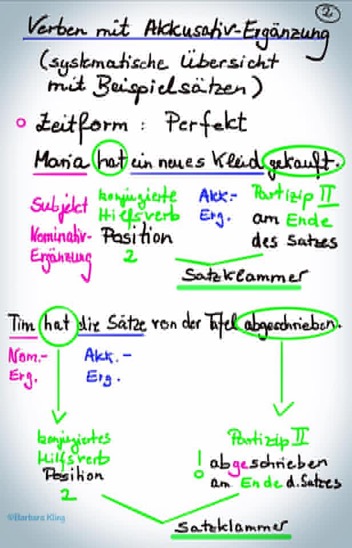 ②
Verben mit Akkusativ-Ergänzung
(systematische Übersicht
mit Beispielsätzen)
o Zeitform : Perfekt
Maria hat ein neues Kleid gekauft.
Subjekt konjugierte Akk.- Partizip II
Nominativ- Hilfsverb Erg. am Ende
Ergänzung Position des Satzes
2
Satzklammer
Tim hat die Sätze von der Tafel abgeschrieben.
Nom.- Akk.-
Erg. Erg.
konjugiertes Partizip II
Hilfsverb ! abgeschrieben
Position am Ende d. Satzes
2
Satzklammer
©Barbara Kling